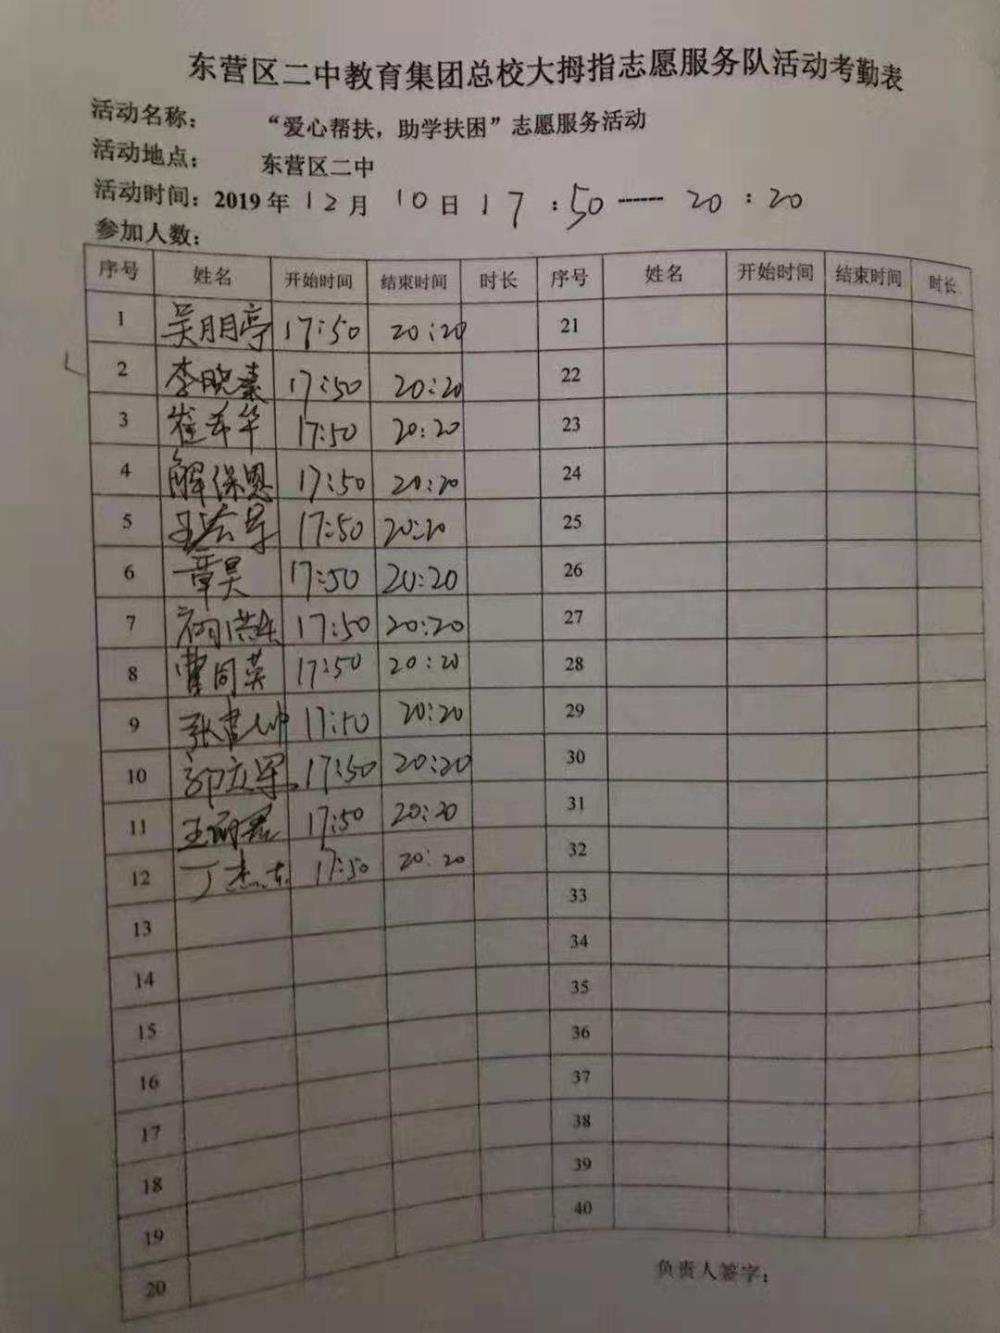 东营区二中教育集团总校大拇指志愿服务队活动考勤表
活动名称： “爱心帮扶，助学扶困”志愿服务活动
活动地点： 东营区二中
活动时间：2019 年 12 月 10 日 17 : 50 ------ 20 : 20
参加人数：
序号 姓名 开始时间 结束时间 时长 序号 姓名 开始时间 结束时间 时长
1 吴朋亭 17:50 20:20 21
2 李晓素 17:50 20:20 22
3 崔希华 17:50 20:20 23
4 解保恩 17:50 20:20 24
5 17:50 20:20 25
6 章昊 17:50 20:20 26
7 17:50 20:20 27
8 曹同英 17:50 20:20 28
9 张 17:50 20:20 29
10 郭立军 17:50 20:20 30
11 王丽君 17:50 20:20 31
12 丁杰东 17:50 20:20 32
13 33
14 34
15 35
16 36
17 37
18 38
19 39
20 40
负责人签字：